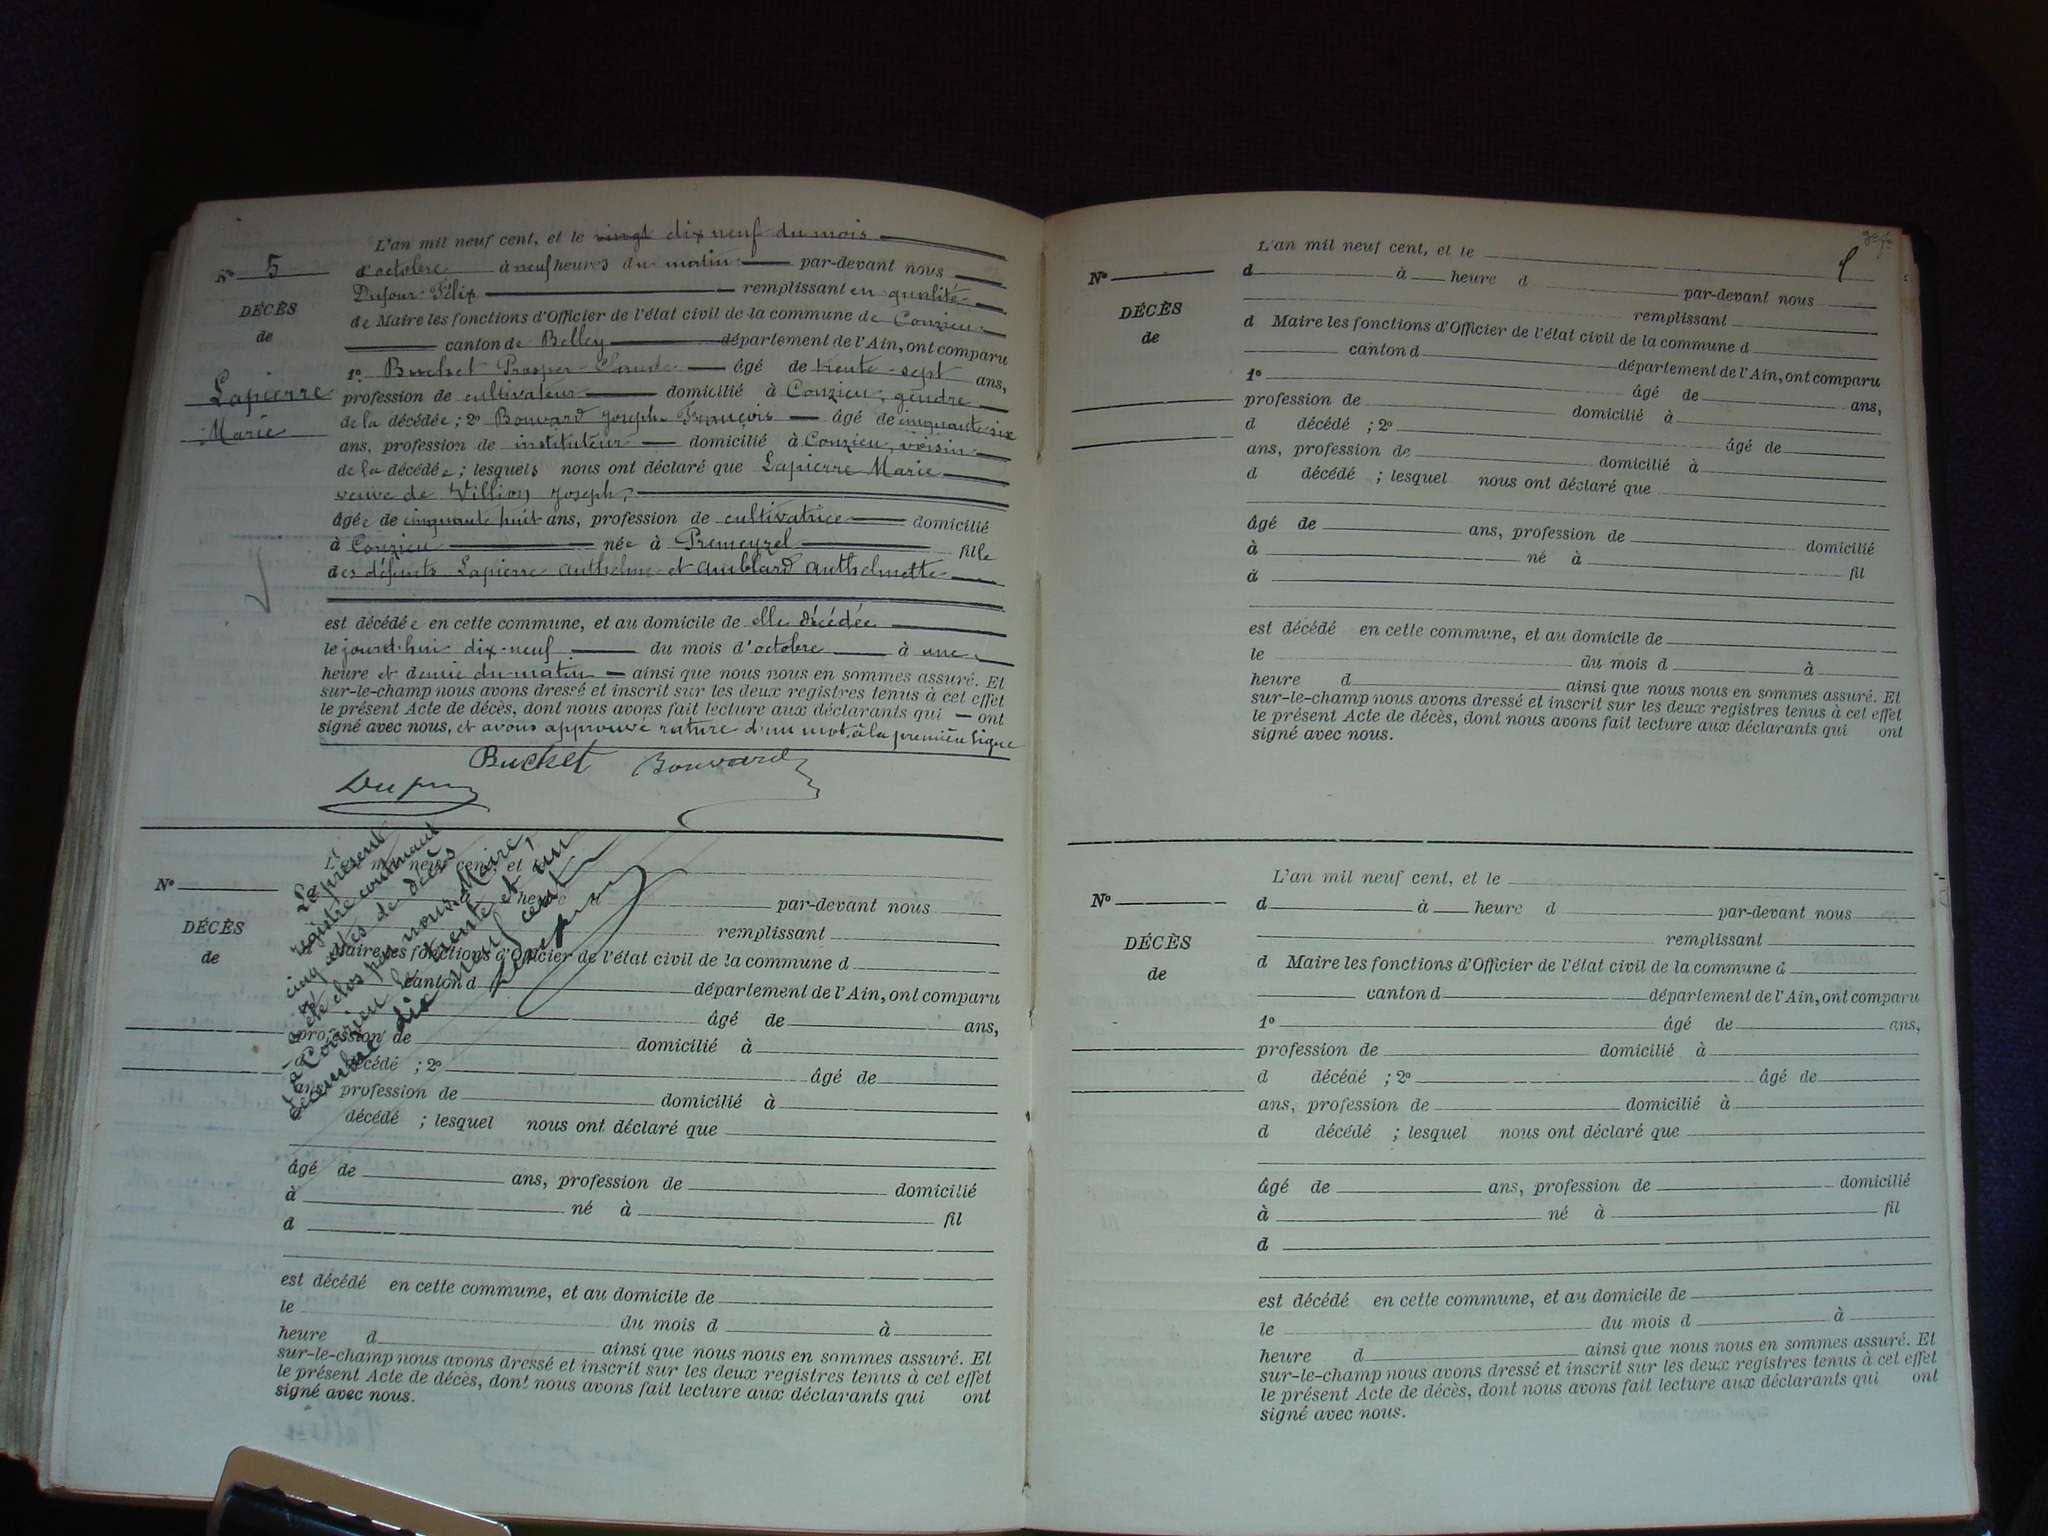 L'an mil neuf cent, et le vingt dix neuf du mois
N° 5
d'octobre à neuf heures du matin par-devant nous
Dufour Félix remplissant en qualité
de Maire les fonctions d'Officier de l'état civil de la commune de Conzieu
canton de Belley département de l'Ain, ont comparu
1° Buchet Prosper Claude âgé de trente-sept ans,
profession de cultivateur domicilié à Conzieu, gendre
de la décédée ; 2° Bouvard Joseph François âgé de cinquante six
ans, profession de instituteur domicilié à Conzieu, voisin
de la décédée ; lesquels nous ont déclaré que Lapierre Marie
veuve de Villion Joseph,
âgée de cinquante huit ans, profession de cultivatrice domicilié
à Conzieu née à Premeyzel fille
des défunts Lapierre Anthelme et Amblard Anthelmette
est décédée en cette commune, et au domicile de elle décédée
le jourd'hui dix-neuf du mois d'octobre à une
heure et demie du matin ainsi que nous nous en sommes assuré. Et
sur-le-champ nous avons dressé et inscrit sur les deux registres tenus à cet effet
le présent Acte de décès, dont nous avons fait lecture aux déclarants qui ont
signé avec nous, et avons approuvé rature d'un mot à la première ligne
DÉCÈS
de
Lapierre
Marie
Buchet Bouvard
Dufour
L'an mil neuf cent, et le
N°
d à heure d par-devant nous
DÉCÈS
de
remplissant
d Maire les fonctions d'Officier de l'état civil de la commune d
canton d département de l'Ain, ont comparu
âgé de ans,
profession de domicilié à
d décédé ; 2° âgé de
ans, profession de domicilié à
décédé ; lesquel nous ont déclaré que
âgé de ans, profession de domicilié
à né à fil
d
est décédé en cette commune, et au domicile de
le du mois d à
heure d ainsi que nous nous en sommes assuré. Et
sur-le-champ nous avons dressé et inscrit sur les deux registres tenus à cet effet
le présent Acte de décès, dont nous avons fait lecture aux déclarants qui ont
signé avec nous.
Le présent
registre contenant
cinq actes de décès
a été clos par nous Maire,
à Conzieu le trente et un
décembre dix neuf cent
Dufour
L'an mil neuf cent, et le
N°
d à heure d par-devant nous
DÉCÈS
de
remplissant
d Maire les fonctions d'Officier de l'état civil de la commune d
canton d département de l'Ain, ont comparu
1° âgé de ans,
profession de domicilié à
d décédé ; 2° âgé de
ans, profession de domicilié à
d décédé ; lesquel nous ont déclaré que
âgé de ans, profession de domicilié
à né à fil
d
est décédé en cette commune, et au domicile de
le du mois d à
heure d ainsi que nous nous en sommes assuré. Et
sur-le-champ nous avons dressé et inscrit sur les deux registres tenus à cet effet
le présent Acte de décès, dont nous avons fait lecture aux déclarants qui ont
signé avec nous.
L'an mil neuf cent, et le
N°
d à heure d par-devant nous
DÉCÈS
de
remplissant
d Maire les fonctions d'Officier de l'état civil de la commune d
canton d département de l'Ain, ont comparu
1° âgé de ans,
profession de domicilié à
d décédé ; 2° âgé de
ans, profession de domicilié à
d décédé ; lesquel nous ont déclaré que
âgé de ans, profession de domicilié
à né à fil
d
est décédé en cette commune, et au domicile de
le du mois d à
heure d ainsi que nous nous en sommes assuré. Et
sur-le-champ nous avons dressé et inscrit sur les deux registres tenus à cet effet
le présent Acte de décès, dont nous avons fait lecture aux déclarants qui ont
signé avec nous.